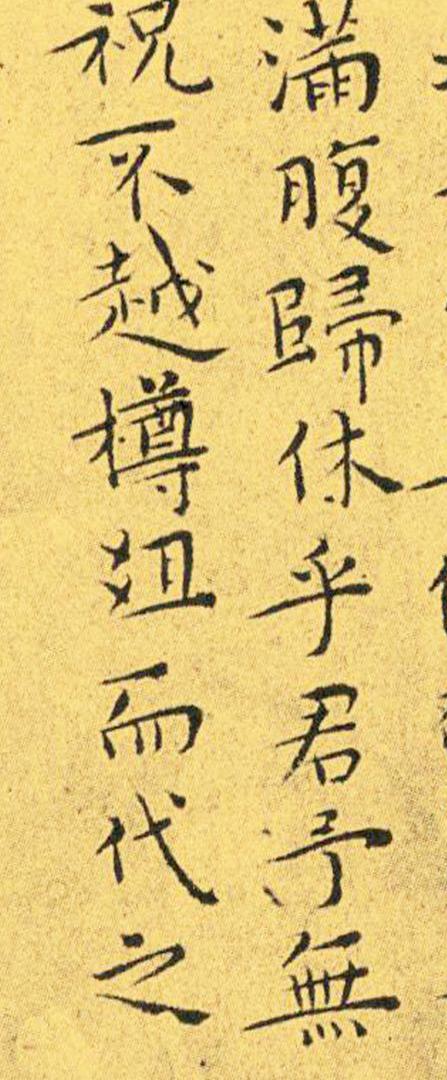 滿腹歸休乎君予無
祝不越樽俎而代之